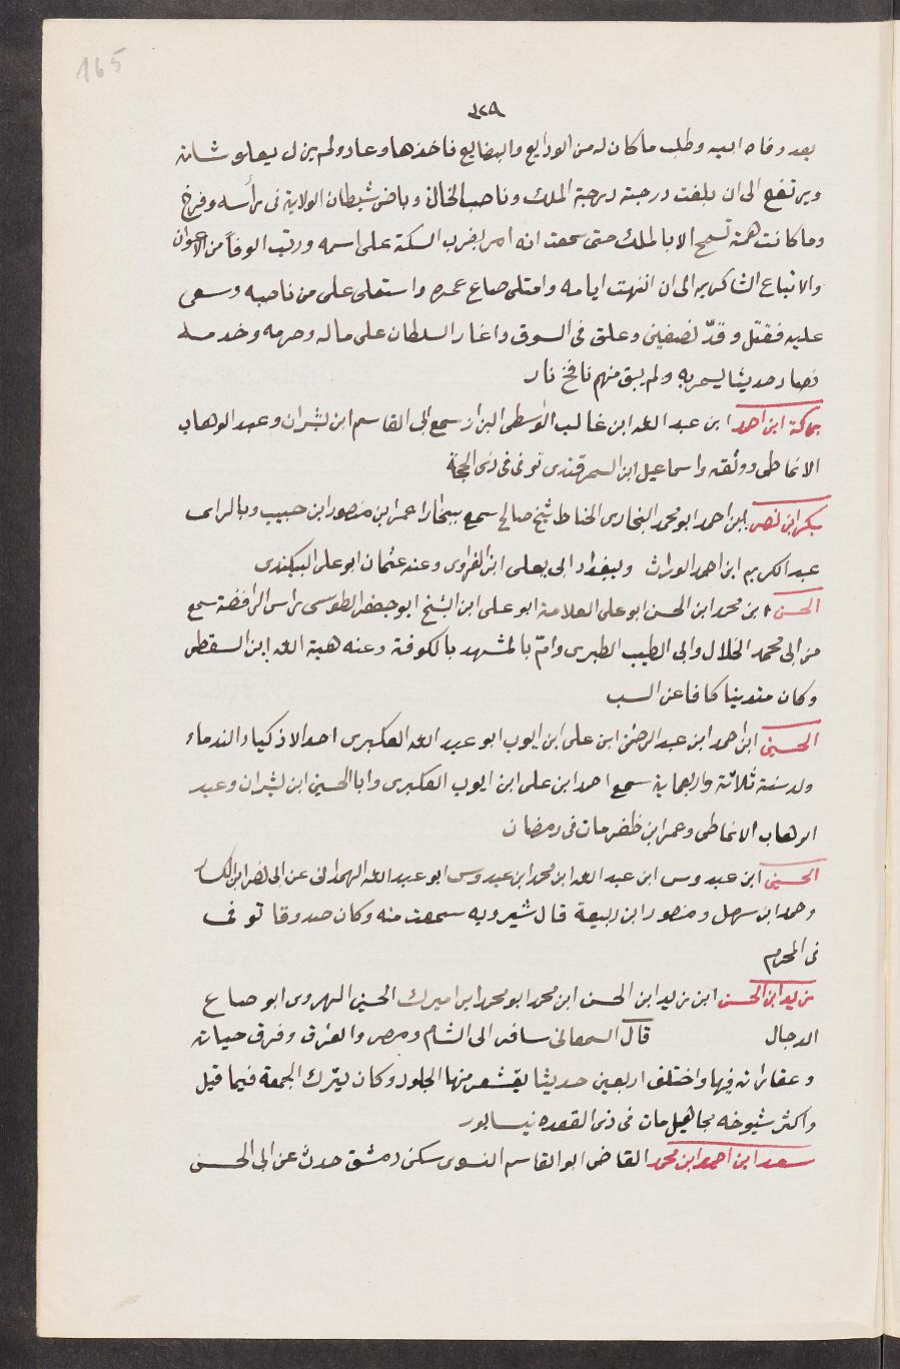 165
٣٢٩
بعد وفاة ابيه وطلب ما كان له من الودايع والبضايع فاخذها وعاد ولم يزل يعلو شانه
ويرتفع الى ان بلغت درجته درجة الملك وناصب الخان وباض شيطان الولاية فى رأسه وفرخ
وما كانت همته تسمح الا بالملك حتى سمعت انه امر بضرب السكة على اسمه ورتب الوفاً من الاعوان
والاتباع الشاكريه الى ان انتهت ايامه وامتلى صاع عمره واستعلى على من ناصبه وسعى
عليه فقتل وقدّ نصفين وعلق فى السوق واغار السلطان على ماله وحرمه وخدمه
فصار حديثا يسمر به ولم يبق منهم نافخ نار
بركة ابن احمد ابن عبد الله ابن غالب الوسطى البزاز سمع ابى القاسم ابن بشران وعبد الوهاب
الانماطى ووثقه واسماعيل ابن السمرقندى توفى فى ذى الحجة
بكر ابن نصر ابن احمد ابو محمد البخارى الخناط شيخ صالح سمع ببخارا عمر ابن منصور ابن حبيب وبالراى
عبد الكريم ابن احمد الوراث وببغداد ابى يعلى ابن الفراوى وعنه عثمان ابو على البيكندى
الحسن ابن محمد ابن الحسن ابو على العلامة ابو على ابن الشيخ ابو جعفر الطوسى راس الرافضة سمع
من ابى محمد الخلال وابى الطيب الطبرى وامّ بالمشهد بالكوفة وعنه هبة الله ابن السقطى
وكان متدينا كافا عن السب
الحسين ابن احمد ابن عبد الرحمن ابن على ابن ايوب ابو عبد الله العكبرى احد الاذكياء الندماء
ولد سنة ثلاثة واربعماية سمع احمد ابن على ابن ايوب العكبرى وابا الحسين ابن بشران وعبد
الوهاب الانماطى وعمر ابن ظفر مات فى رمضان
الحسين ابن عبدوس ابن عبد الله ابن محمد ابن عبدوس ابو عبد الله الهمدانى عن ابى نصر ابن الكسار
وحمد ابن سهل ومنصور ابن ربيعة قال شيرويه سمعت منه وكان صدوقا توفى
فى المحرم
زيد ابن الحسن ابن زيد ابن الحسن ابن محمد ابو محمد ابن اميرك الحسينى الهروى ابو صاع
الدجال قال السمعانى سافر الى الشام ومصر والعراق وفرق حياته
وعقاراته فيها واختلق اربعين حديثا يقشعر منها الجلود وكان يترك الجمعة فيما قيل
واكثر شيوخه مجاهيل مات فى ذى القعده نيسابور
سعد ابن احمد ابن محمد القاضى ابو القاسم النسوى سكن دمشق حدث عن ابى الحسن